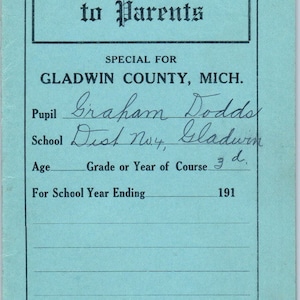 to Parents
SPECIAL FOR
GLADWIN COUNTY, MICH.
Pupil Graham Dodds
School Dist No 4, Gladwin
Age Grade or Year of Course 3d.
For School Year Ending 191